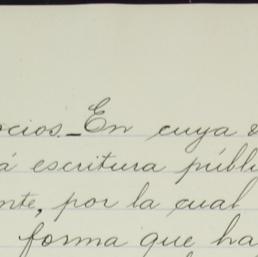 ocios._ En cuya
á escritura públi
nte, por la cual
forma que ha